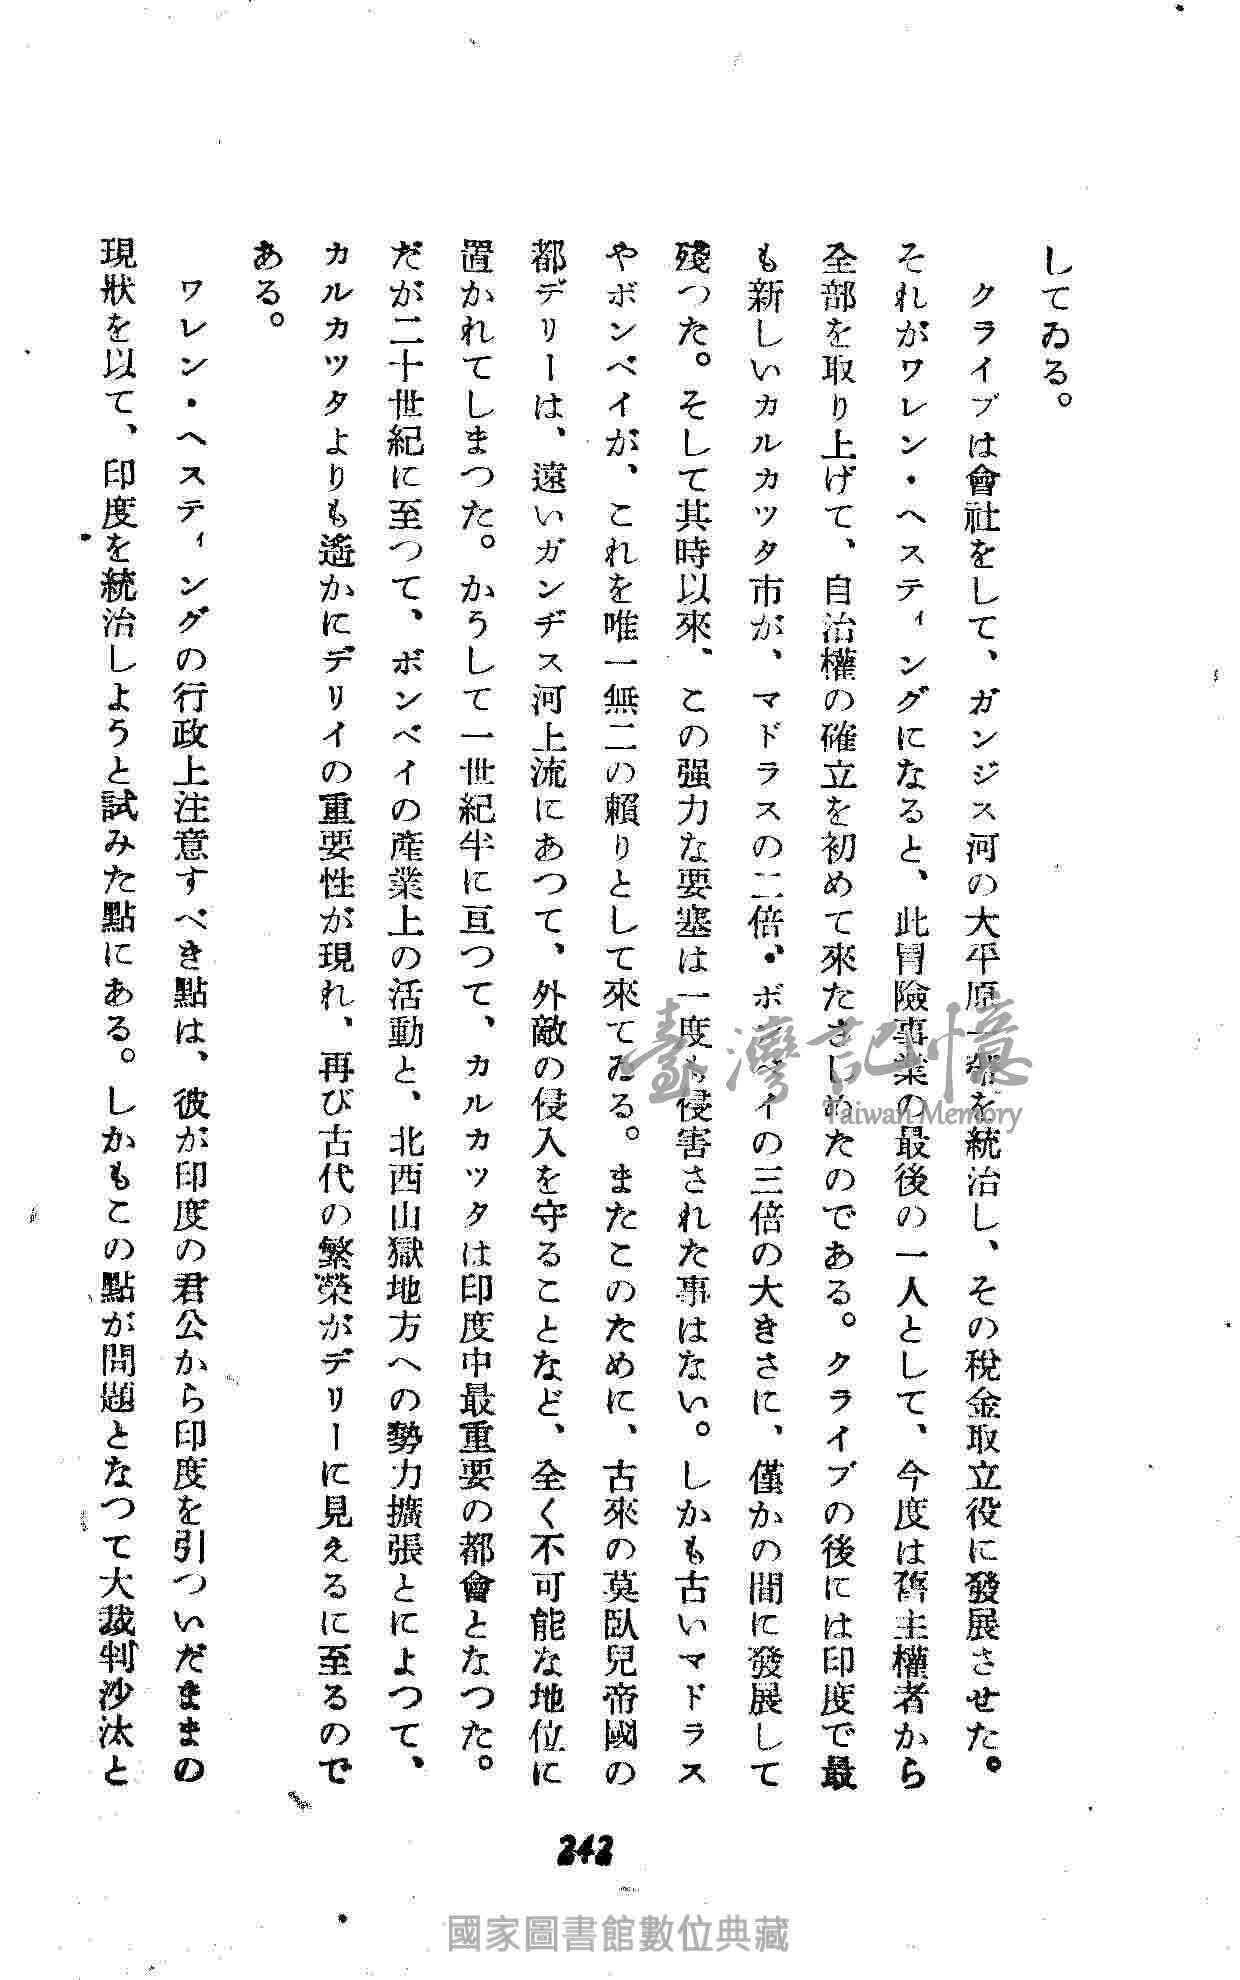 してゐる。
クライブは會社をして、ガンジス河の大平原一帶を統治し、その稅金取立役に發展させた。
それがワレン・ヘスティングになると、此冐險事業の最後の一人として、今度は舊主權者から
全部を取り上げて、自治權の確立を初めて來たさしめたのである。クライブの後には印度で最
も新しいカルカツタ市が、マドラスの二倍、ボンベイの三倍の大きさに、僅かの間に發展して
殘つた。そして其時以來、この强力な要塞は一度も侵害された事はない。しかも古いマドラス
やボンベイが、これを唯一無二の賴りとして來てゐる。またこのために、古來の莫臥兒帝國の
都デリーは、遠いガンヂス河上流にあつて、外敵の侵入を守ることなど、全く不可能な地位に
置かれてしまつた。かうして一世紀半に亘つて、カルカツタは印度中最重要の都會となつた。
だが二十世紀に至つて、ボンベイの產業上の活動と、北西山獄地方への勢力擴張とによつて、
カルカツタよりも遙かにデリイの重要性が現れ、再び古代の繁榮がデリーに見えるに至るので
ある。
ワレン・ヘスティングの行政上注意すべき點は、彼が印度の君公から印度を引ついだままの
現狀を以て、印度を統治しようと試みた點にある。しかもこの點が問題となつて大裁判沙汰と
242
臺灣記憶
Taiwan Memory
國家圖書館數位典藏